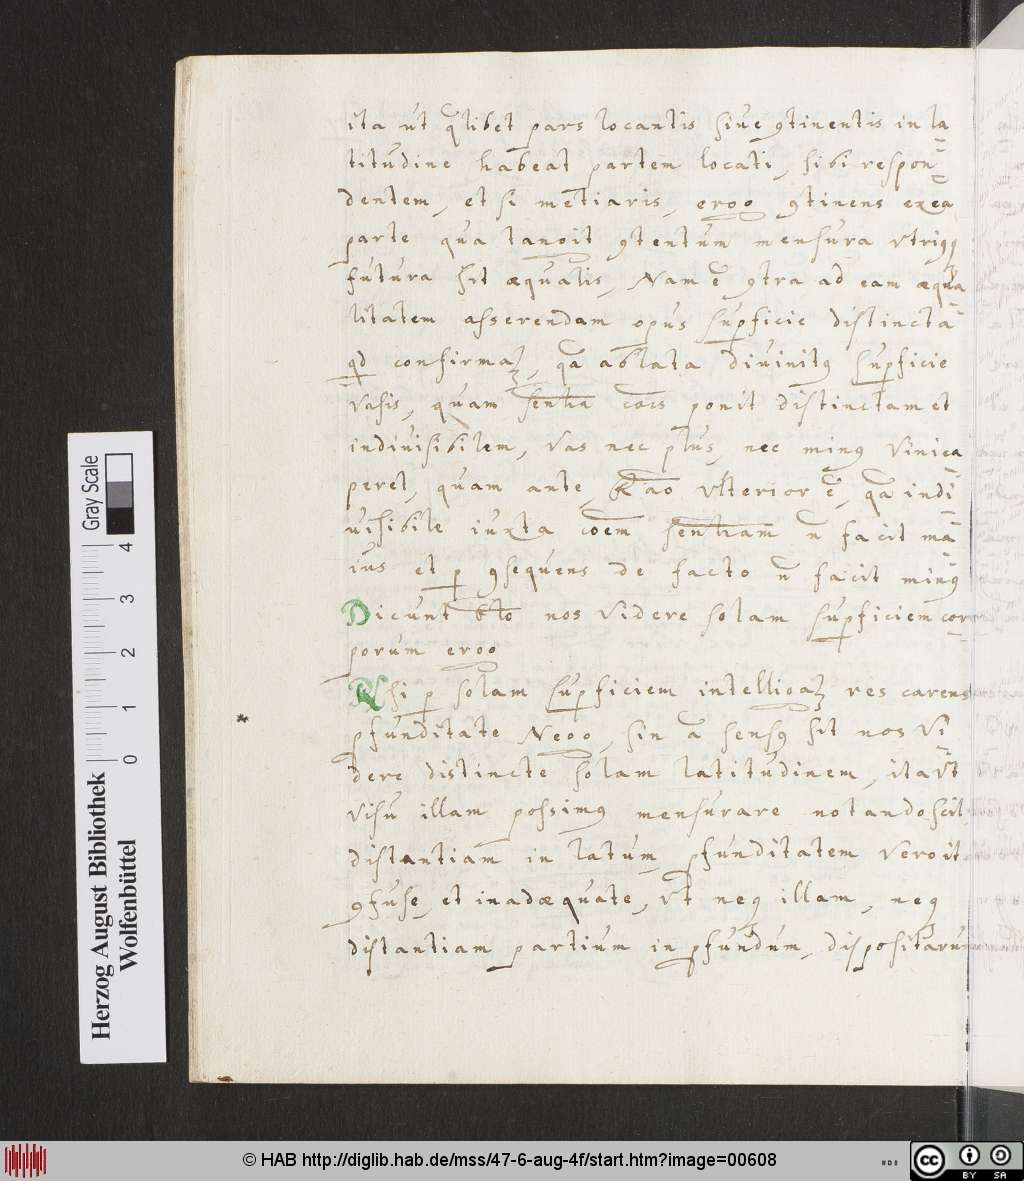 ita ut qlibet pars locantis siue 9tinentis in la=
titudine habeat partem locati, sibi respon=
dentem, et si metiaris, ergo 9tinens ex ea
parte qua tangit 9tentum mensura vtriq3
futura sit æqualis, Nam ē 9tra ad eam æqua=
litatem asserendam opus supficie distincta
qd confirma3, qa ablata diuinit9 supficie
vasis, quam sentia cois ponit distinctam et
indiuisibilem, vas nec plus, nec min9 vini ca=
peret, quam ante, Rao vlterior ē, qa indi=
uisibile iuxta coem sentiam n facit ma=
ius et p 9sequens de facto n facit min9
Dicunt nos videre solam supficiem cor=
porum ergo
si p solam supficiem intelliga3 res carens
pfunditate Nego, sin a sens9 sit nos vi=
dere distincte solam latitudinem, ita vt
visu illam possim9 mensurare notando scil.
distantiam in latum, pfunditatem vero it
9fuse, et inadæquate, vt neq illam, neq
distantiam partium in pfundum, dispositarum
Herzog August Bibliothek
Wolfenbüttel
Gray Scale
0 1 2 3 4
© HAB http://diglib.hab.de/mss/47-6-aug-4f/start.htm?image=00608
cc BY SA